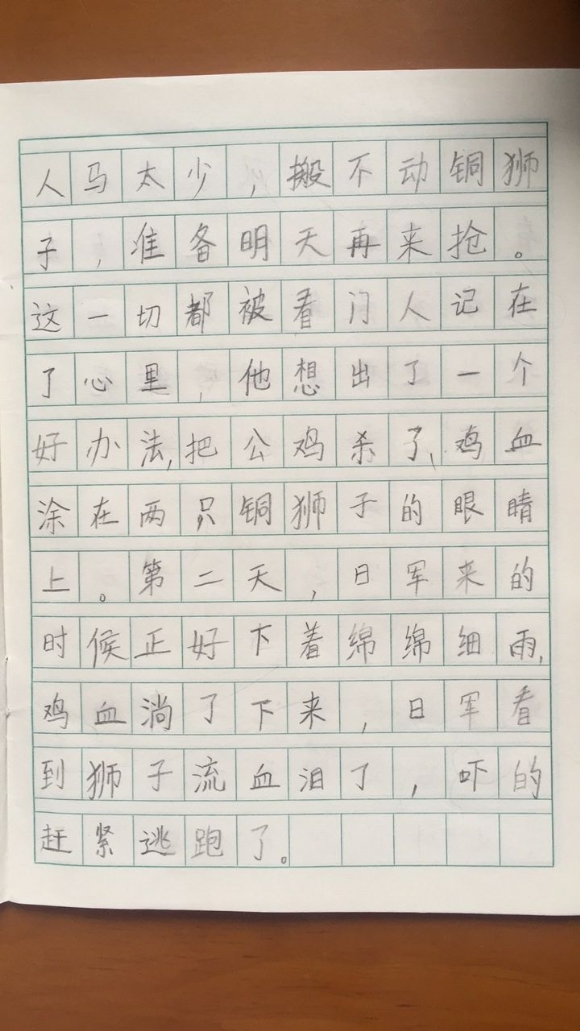 人马太少，搬不动铜狮
子，准备明天再来抢。
这一切都被看门人记在
了心里，他想出了一个
好办法，把公鸡杀了、鸡血
涂在两只铜狮子的眼睛
上。第二天，日军来的
时候正好下着绵绵细雨，
鸡血淌了下来，日军看
到狮子流血泪了，吓的
赶紧逃跑了。